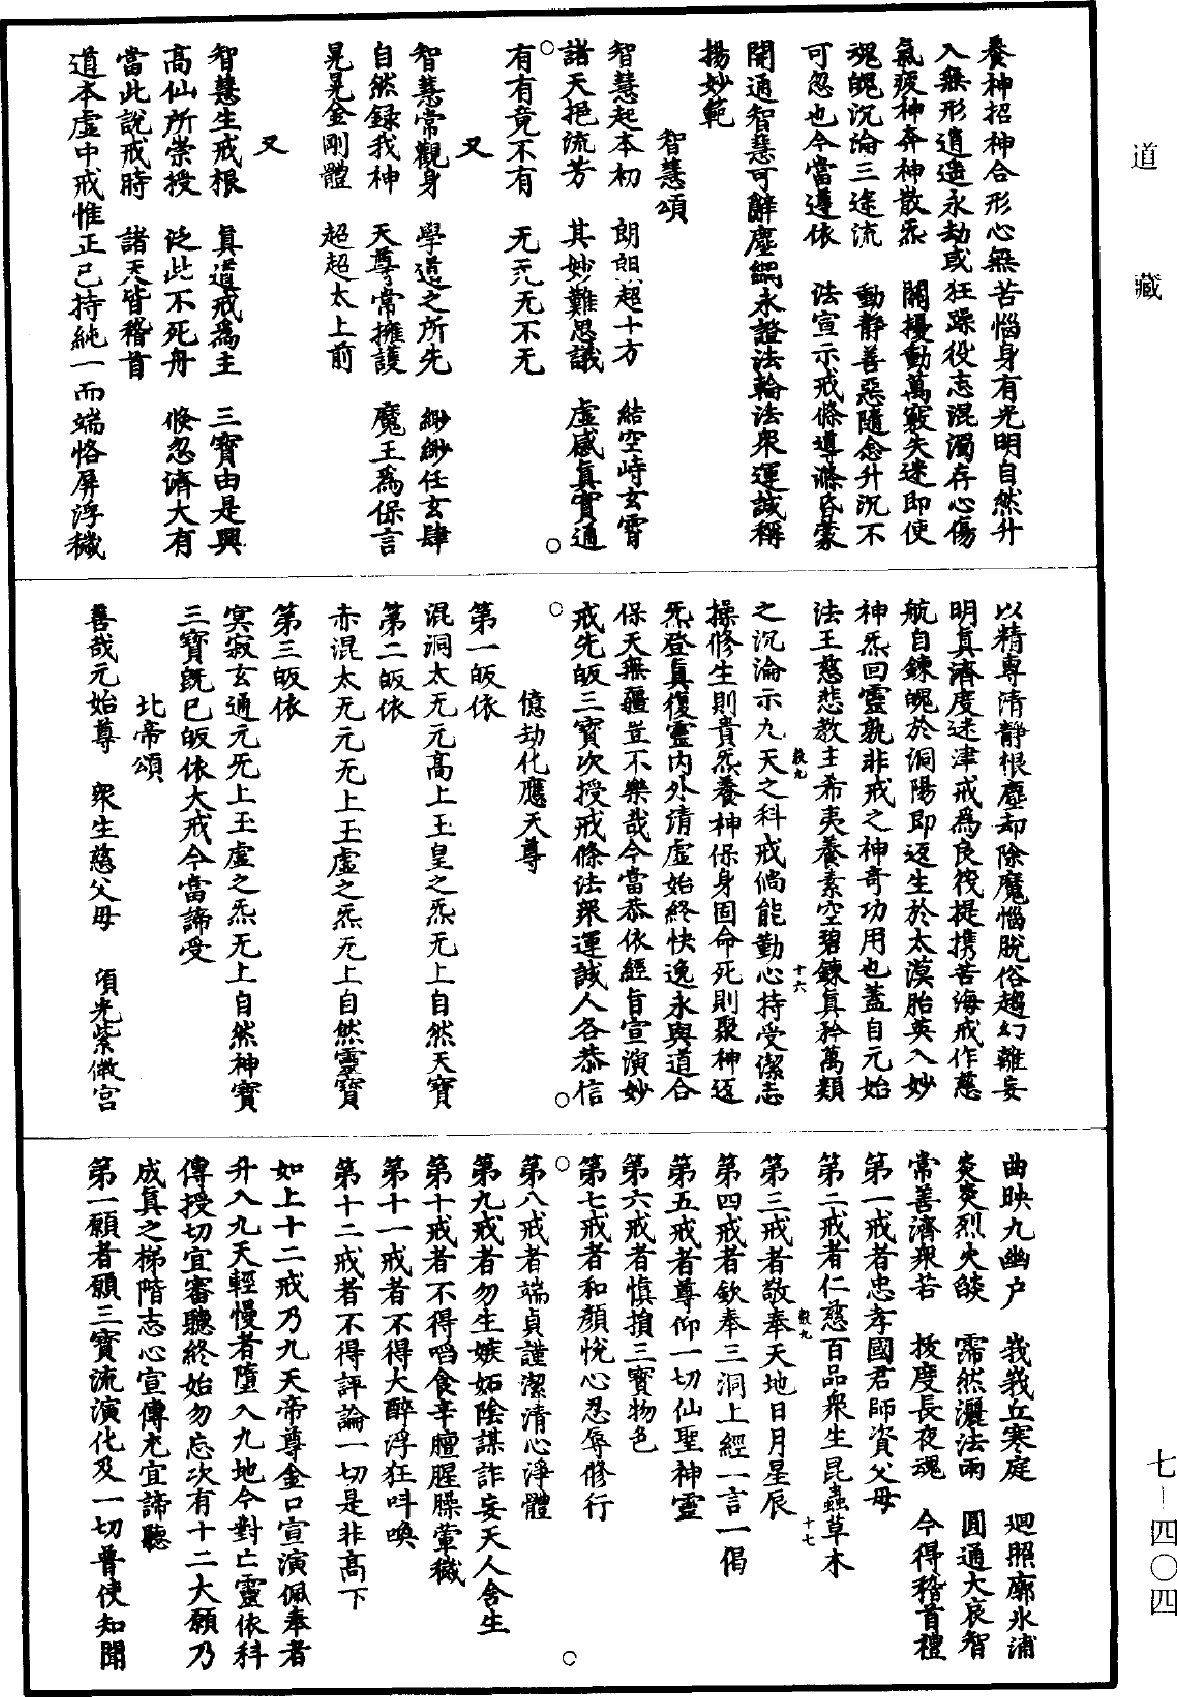 道藏
七—四〇四
養神招神合形心無苦惱身有光明自然升
入無形逍遙永劫或狂躁役志混濁存心傷
氣疲神奔神散炁　關擾動萬竅失迷即使
魂魄沉淪三途流　動靜善惡隨念升沉不
可忽也今當遵依　法宣示戒條導滌昏蒙
開通智慧可辭塵網永證法輪法衆運誠稱
揚妙範
智慧頌
智慧起本初　朗朗超十方　結空峙玄霄
諸天挹流芳　其妙難思議　虛感真實通
有有竟不有　无无无不无
又
智慧常觀身　學道之所先　緲緲任玄肆
自然録我神　天尊常擁護　魔王爲保言
晃晃金剛體　超超太上前
又
智慧生戒根　真道戒爲主　三寶由是興
高仙所崇授　泛此不死舟　倏忽濟大有
當此說戒時　諸天皆稽首
道本虛中戒惟正己持純一而端恪屏浮穢
以精專清靜根塵却除魔惱脫俗趨幻離妄
明真濟度迷津戒爲良筏提携苦海戒作慈
航自鍊魄於洞陽即返生於太漠胎英入妙
神炁回靈孰非戒之神奇功用也蓋自元始
法王慈悲教主希夷養素空碧鍊真矜萬類
之沉淪示九天之科戒倘能勤心持受潔志
操修生則貴炁養神保身固命死則聚神返
炁登真復靈内外清虛始終快逸永與道合
保天無疆豈不樂哉今當恭依經旨宣演妙
戒先皈三寶次授戒條法衆運誠人各恭信
億劫化應天尊
第一皈依
混洞太无元高上玉皇之炁无上自然天寶
第二皈依
赤混太无元无上玉虛之炁无上自然靈寶
第三皈依
冥寂玄通元无上玉虛之炁无上自然神寶
三寶既已皈依大戒今當諦受
北帝頌
善哉元始尊　衆生慈父母　項光紫微宮
曲映九幽户　峩峩丘寒庭　迴照廓氷浦
炎炎烈火燄　霈然灑法雨　圓通大哀智
常善濟衆苦　拔度長夜魂　今得稽首禮
第一戒者忠孝國君師資父母
第二戒者仁慈百品衆生昆蟲草木
第三戒者敬奉天地日月星辰
第四戒者欽奉三洞上經一言一偈
第五戒者尊仰一切仙聖神靈
第六戒者慎損三寶物色
第七戒者和顏悅心忍辱修行
第八戒者端貞謹潔清心淨體
第九戒者勿生嫉妬陰謀詐妄天人含生
第十戒者不得啗食辛膻腥臊葷穢
第十一戒者不得大醉浮狂叫喚
第十二戒者不得評論一切是非高下
如上十二戒乃九天帝尊金口宣演佩奉者
升入九天輕慢者墮入九地今對亡靈依科
傳授切宜審聽終始勿忘次有十二大願乃
成真之梯階志心宣傳尤宜諦聽
第一願者願三寶流演化及一切普使知聞